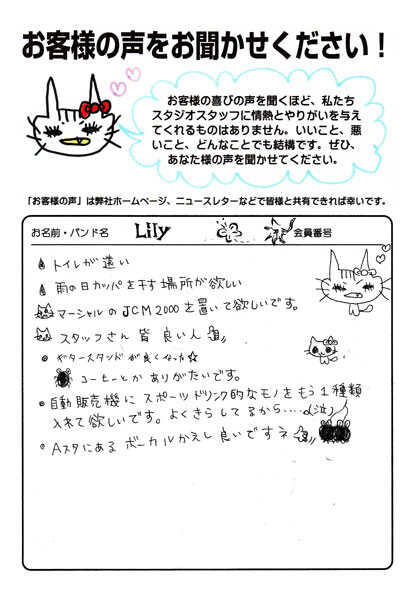 お客様の声をお聞かせください！
お客様の喜びの声を聞くほど、私たち
スタジオスタッフに情熱とやりがいを与え
てくれるものはありません。いいこと、悪
いこと、どんなことでも結構です。ぜひ、
あなた様の声を聞かせてください。
「お客様の声」は弊社ホームページ、ニュースレターなどで皆様と共有できれば幸いです。
お名前・バンド名 Lily 会員番号
トイレが遠い
雨の日カッパを干す場所が欲しい
マーシャルのJCM2000を置いて欲しいです。
スタッフさん 皆 良い人
ギタースタンドが良くなった☆
コーヒーとか ありがたいです。
自動販売機に スポーツドリンク的なモノをもう1種類
入れて欲しいです。よくきらしてるから....(泣)
Aスタにある ボーカルかえし 良いですネ